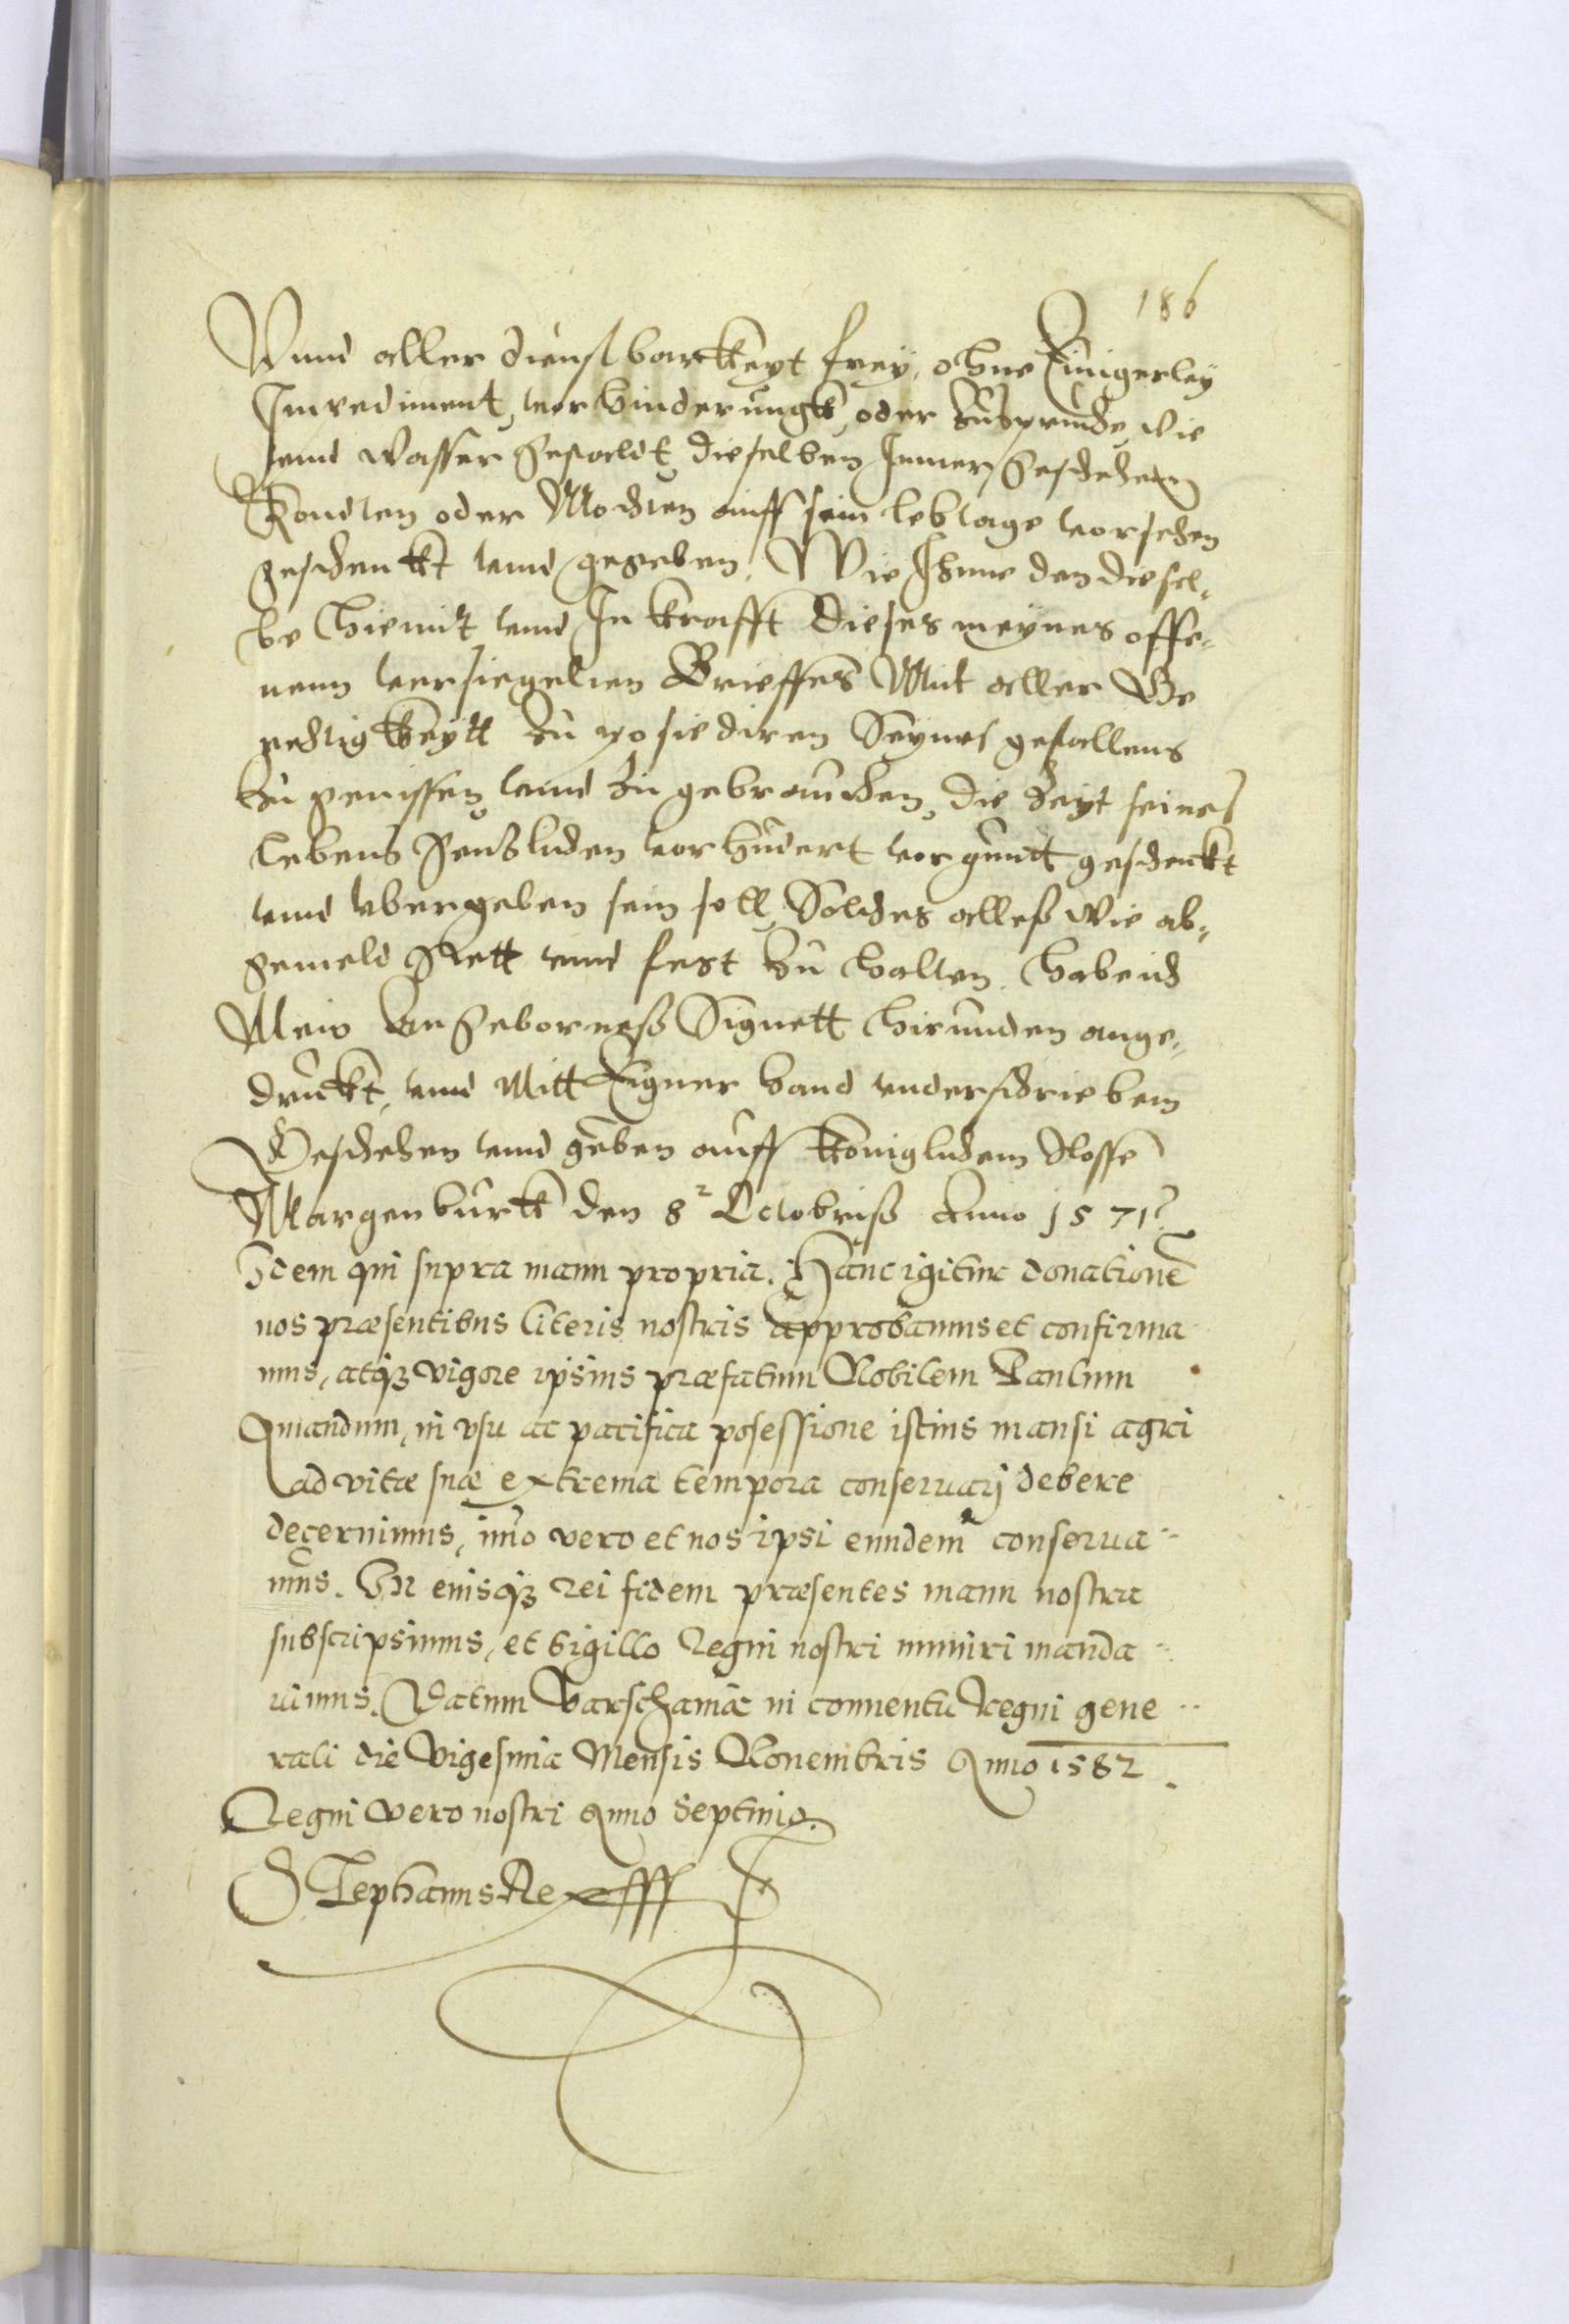 186
Vnnd aller dienstbarkkeyt frey, ohne Einigerley
Impediment, vorhinderungk, oder Zusprüche, wie
vnnd wasser gestaldt, dieselben Immer geschehenn
Kondten oder Mochten auff sein lebtage vorsehen
geschenkt vnnd gegeben. Wie Ihme den diesel„
be hiemit vnnd In krafft dieses meynes offe„
nenn versiegelten Brieffes Mit aller Ge
rechtigkeytt Zu possediren Seynes gefallens
Zu genissen vnnd Zu gebrauchen, die Zeyt seines
lebens genslichen vorhindert vorguntt geschenkt
vnnd vbergeben sein soll, Solches alless wie ob„
gemeld stett vnnd fest Zu halten, Habe ich
Mein Angeborness Signett hirunden ange„
druckt, vnnd Mitt Eigner hand underschriebenn
Geschehen vnnd geben auff Koniglichem slosse
Margenburkk den 8 Octobriss Anno 1571
Idem qui supra manu propria. Hanc igitur donationē
nos præsentibus literis nostris approbamus et confirma
mus, atqꝫ vigore ipsius præfatum Nobilem Paulum
Quandum, in vsu ac pacifica posessione istius mansi agri
ad vitæ suæ extrema tempora conseruarj debere
decernimus, imo vero et nos ipsi eundem conserua„
mus. In cuisqꝫ rei fidem præsentes manu nostra
subscripsimus, et Sigillo Regni nostri muniri manda„
uimus. Datum Varschauiæ in conuentu Regni gene„
rali die Vigesima Mensis Nouembris Anno 1582.
Regni vero nostri Anno Septimo.
Stephanus Rex